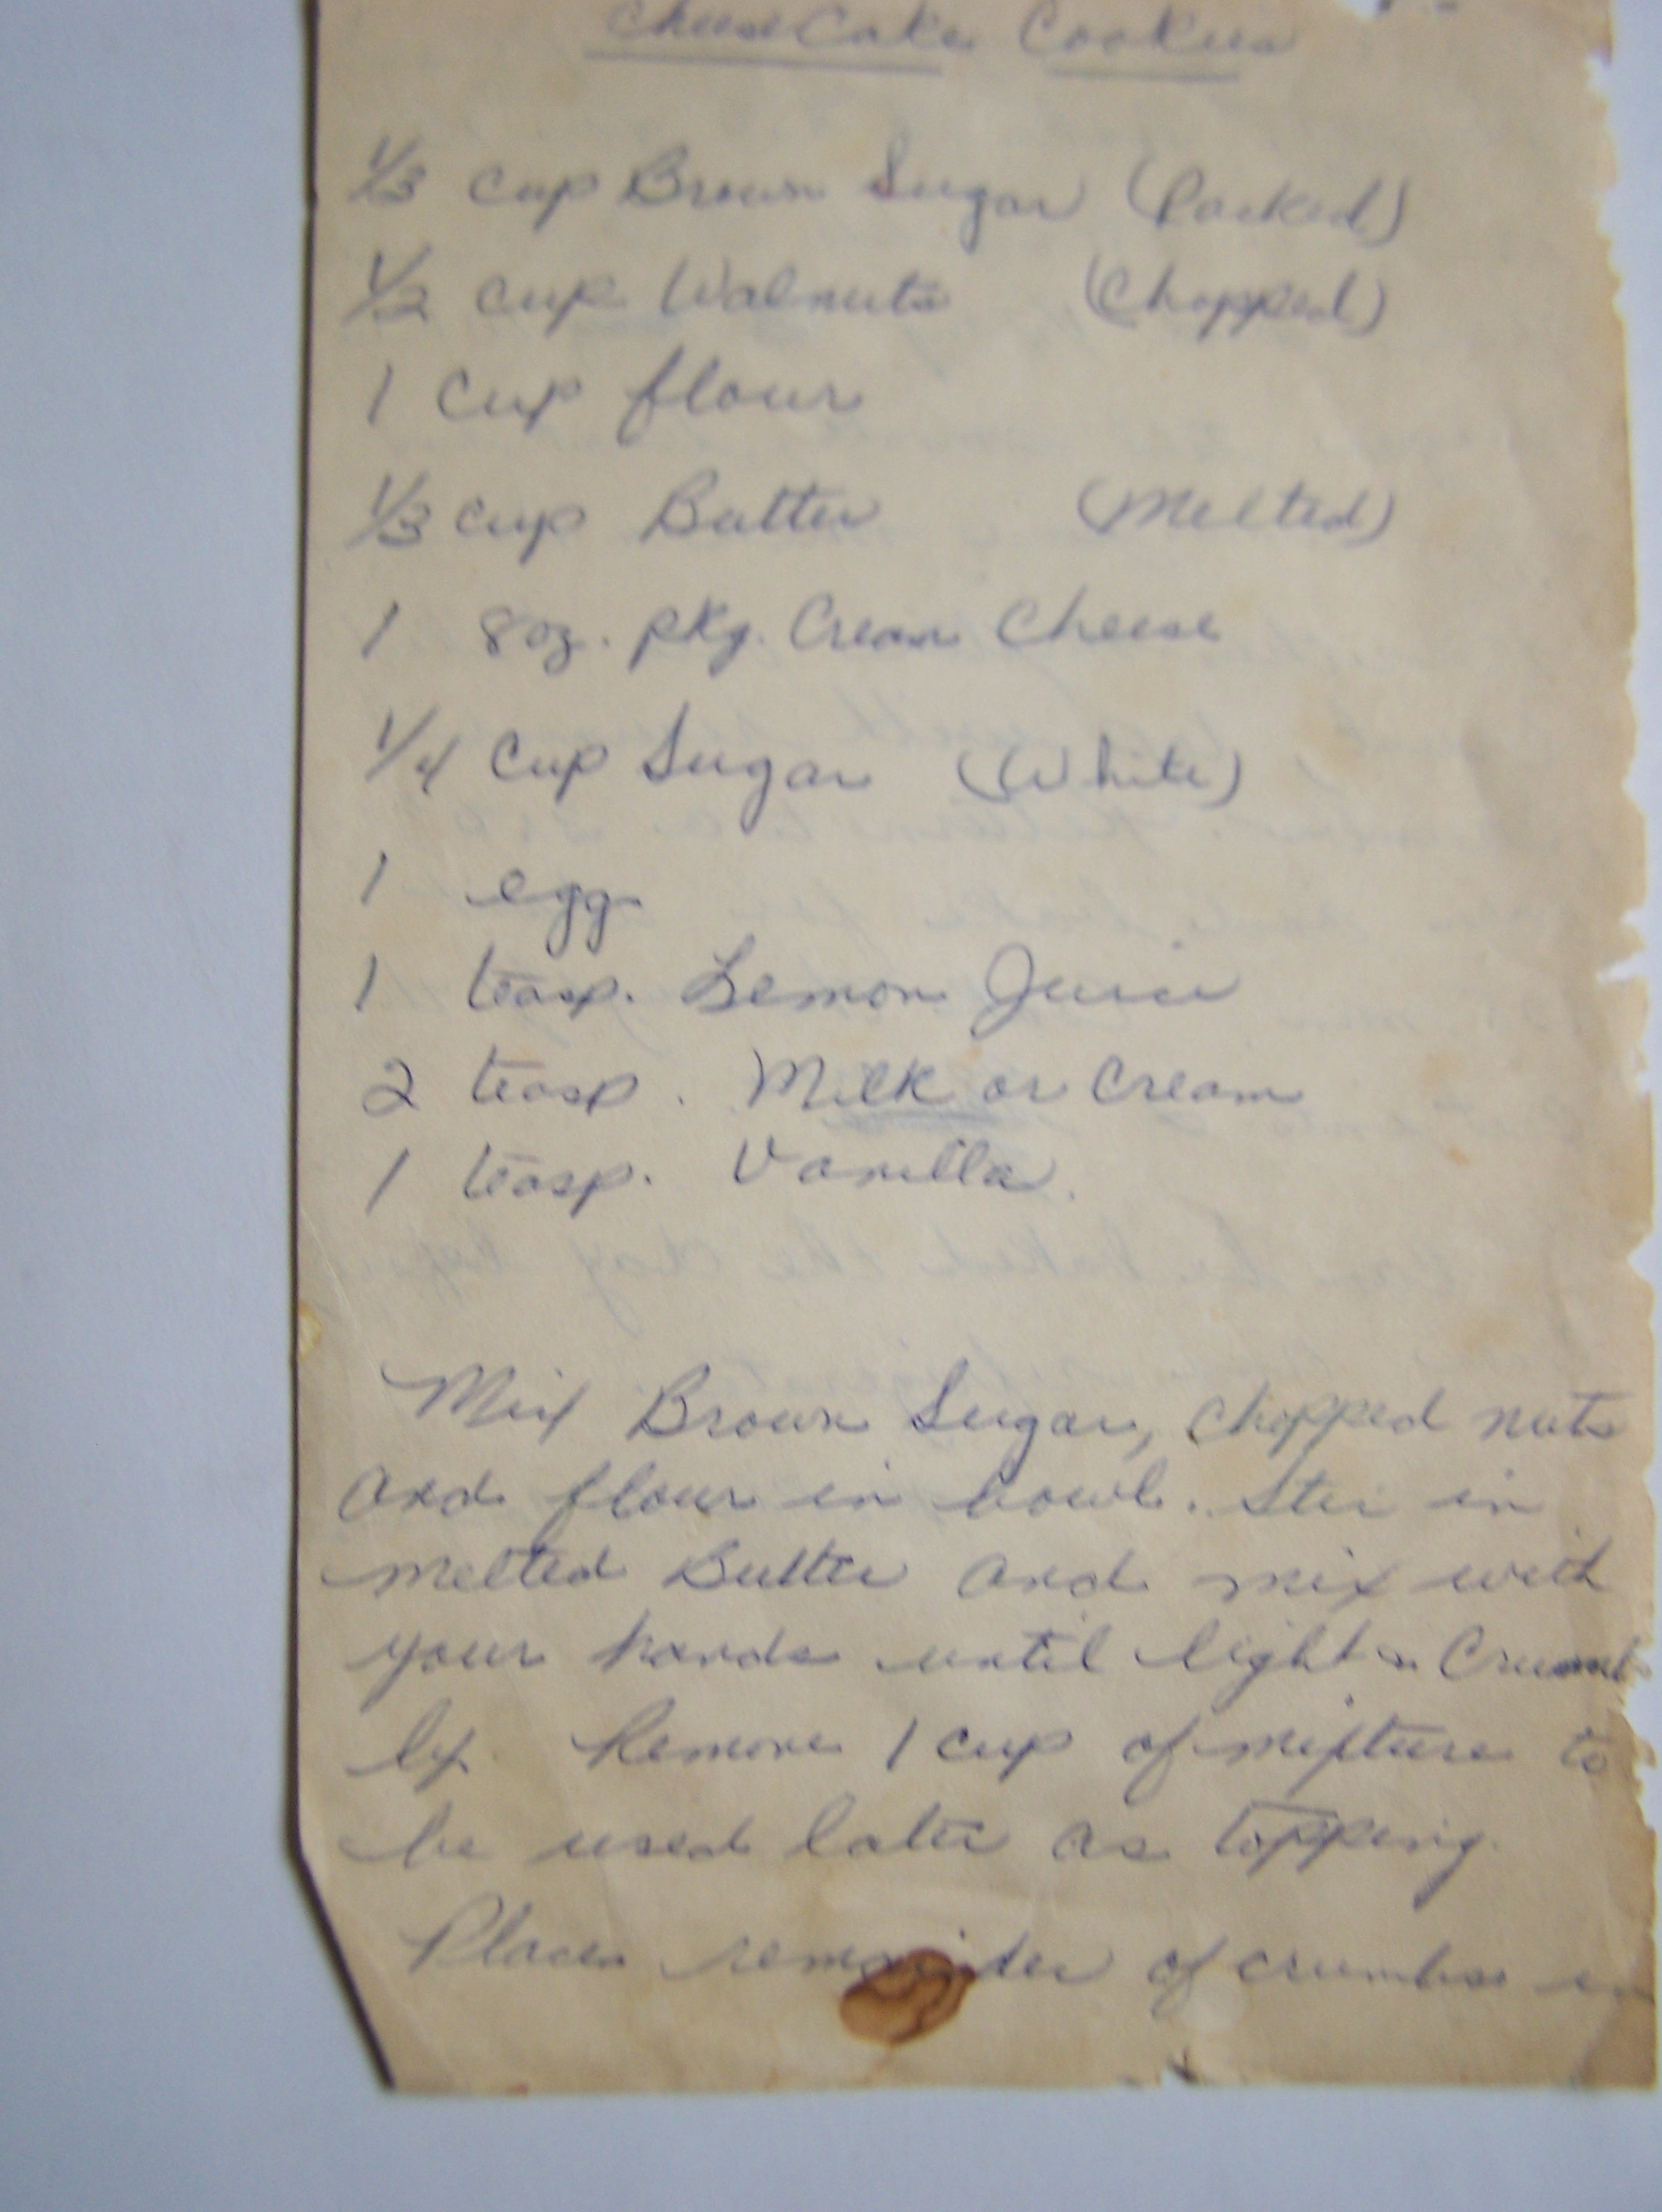 Cheese Cake Cookies
1/3 cup Brown Sugar (Packed)
1/2 cup Walnuts (Chopped)
1 Cup flour
1/3 cup Butter (Melted)
1 8 oz. pkg. Cream Cheese
1/4 Cup Sugar (White)
1 egg
1 teasp. Lemon Juice
2 teasp. Milk or Cream
1 teasp. Vanilla.
Mix Brown Sugar, chopped nuts
and flour in bowl. Stir in
melted Butter and mix with
your hands until light n Crumb
ly. Remove 1 cup of mixture to
be used later as topping.
Place remainder of crumbs in